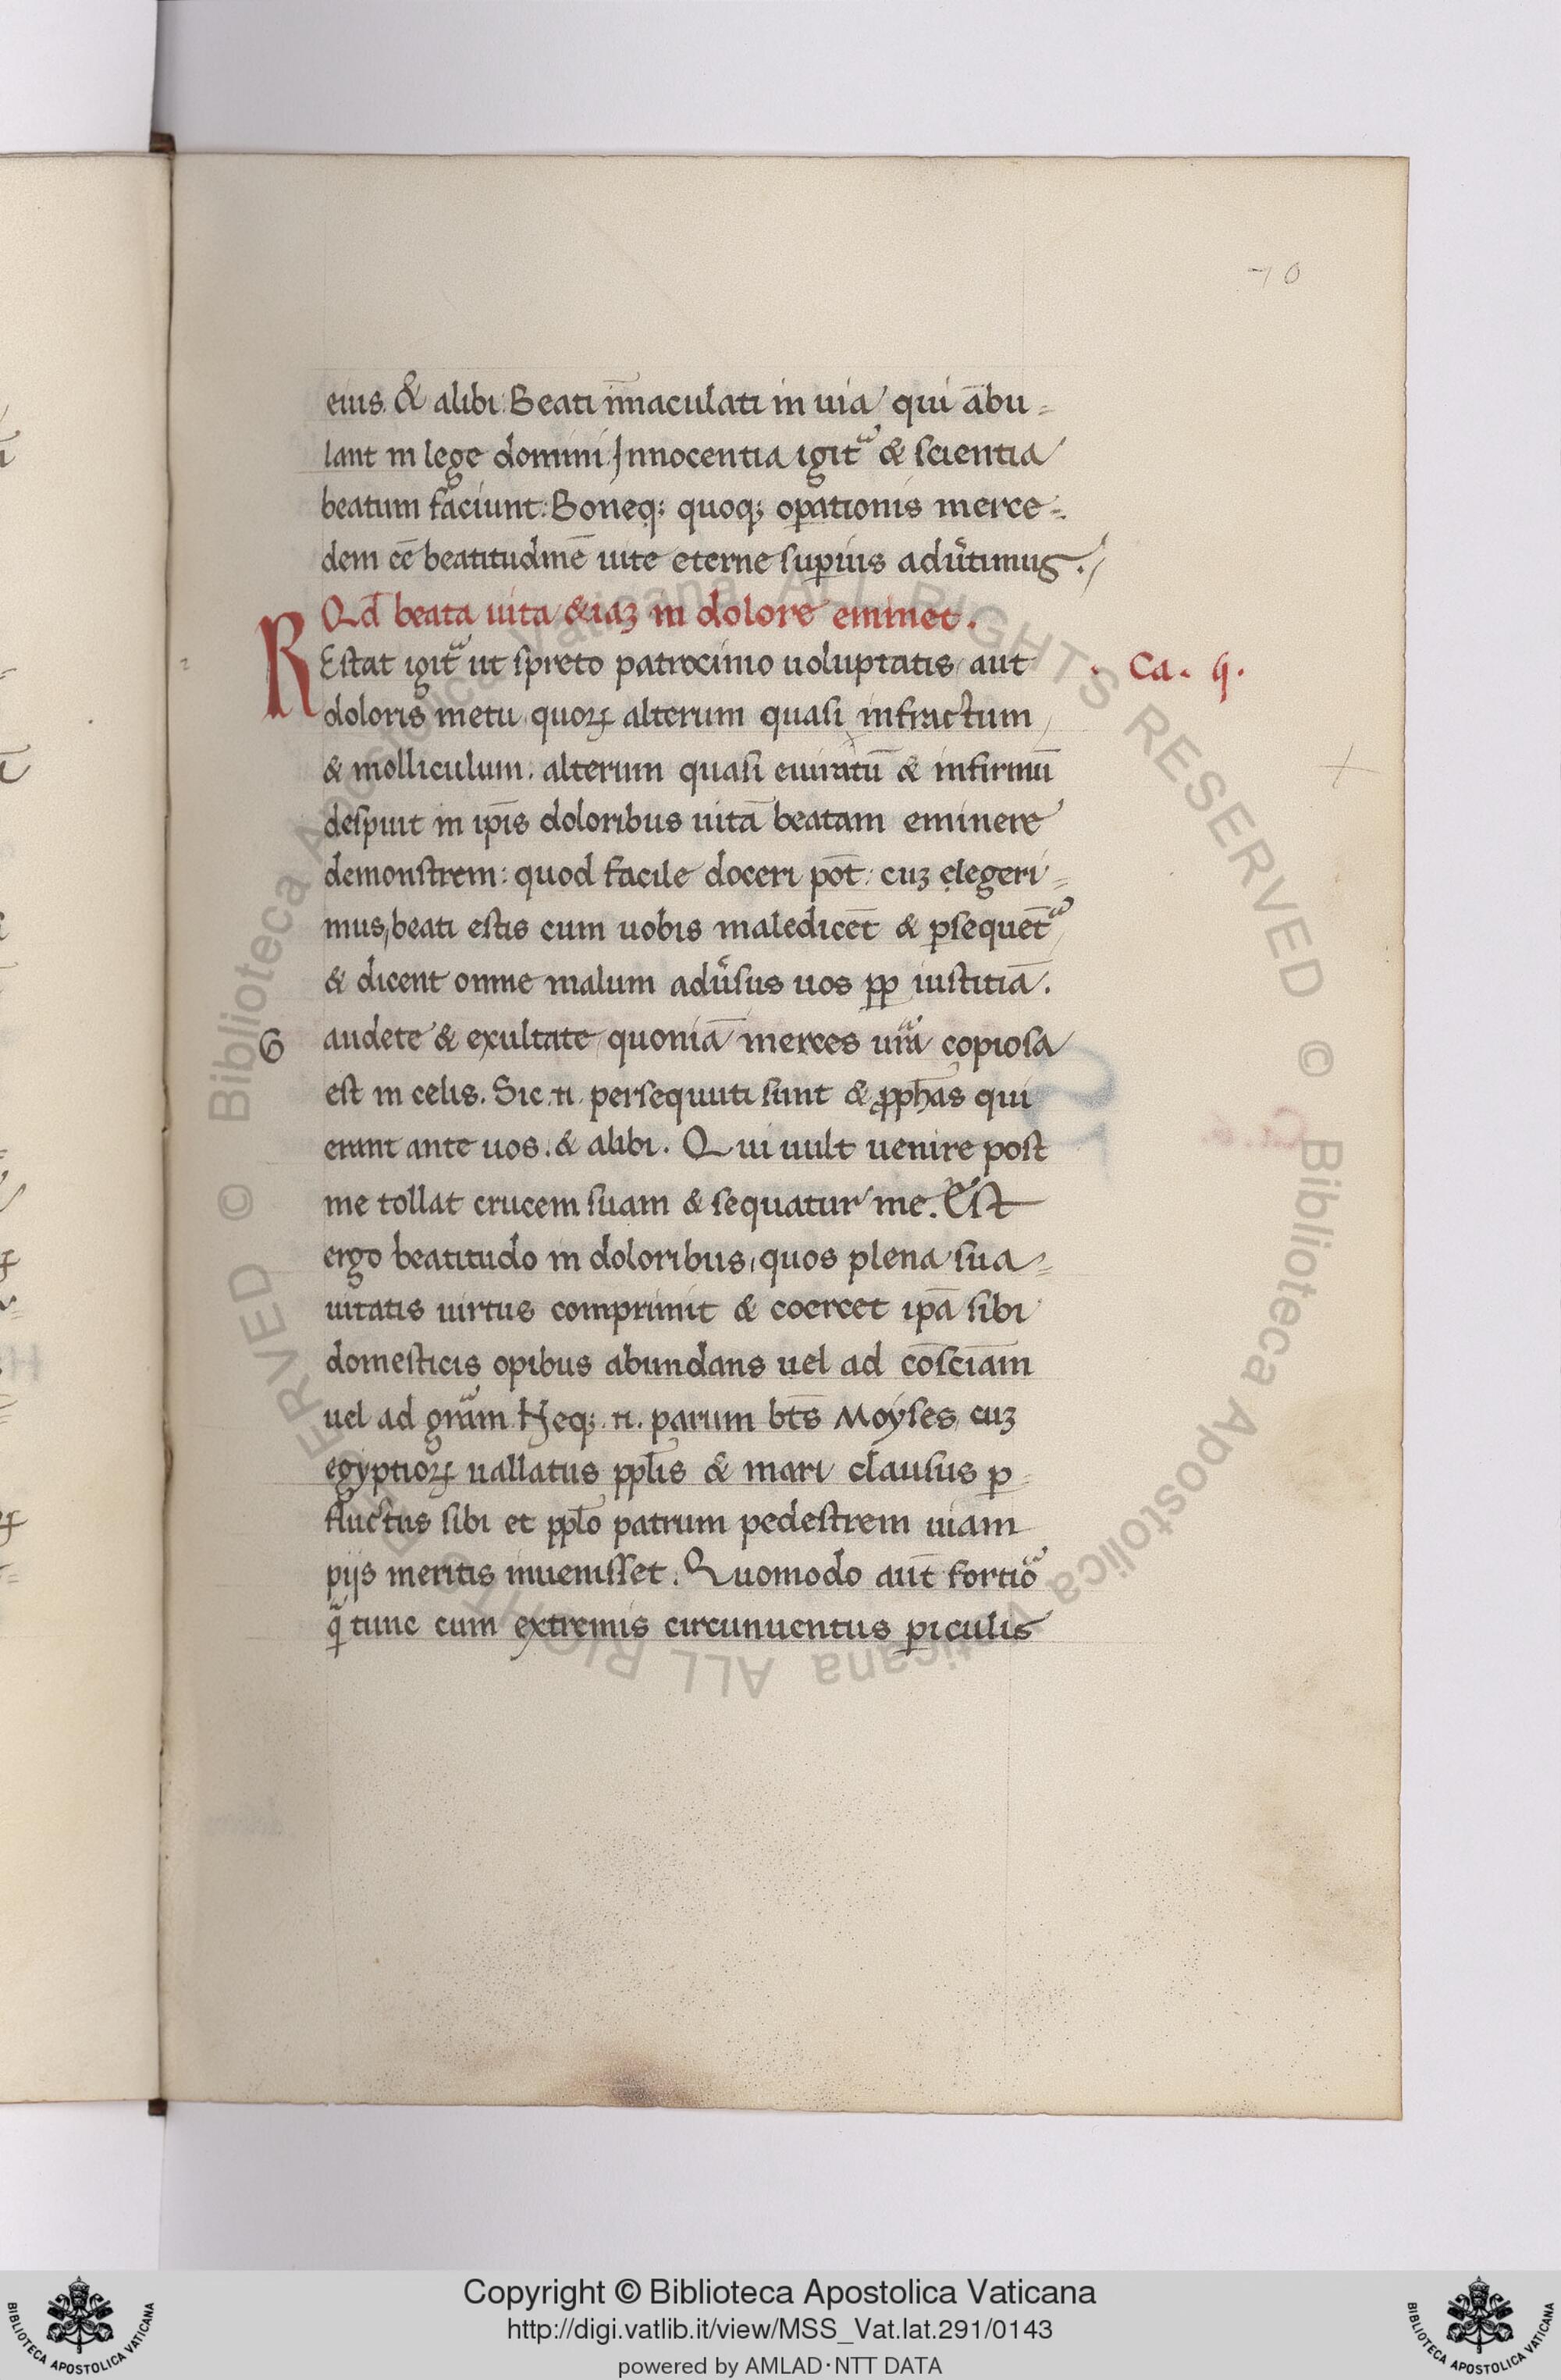 70
eius. & alibi: Beati im̄aculati in uia qui ābu=
lant in lege domini. Innocentia igit᷑ & scientia
beatum faciunt: Boneq; quoq; oꝑationis merce=
dem eē beatitudinē uite eterne suꝑius adũtimus.
Qd̄ beata uita &iaꝫ in dolore eminet.
REstat igit᷑ ut spreto patrocinio uoluptatis, aut
Ca. 4.
doloris metu, quoꝝ alterum quasi infractum
& molliculum. alterum quasi euiratū & infirmū
despuit in ip̄is doloribus uitā beatam eminere
demonstrem: quod facile doceri pōt: cuꝫ elegeri=
mus, beati estis cum uobis maledicēt & ꝑsequēt᷑
& dicent omne malum adũsus uos ꝓp iustitiā.
Gaudete & exultate quoniā merces ur̄a copiosa
est in celis. Sic .n. persequuti sunt & ꝓph̄as qui
erunt ante uos. & alibi. Qui uult uenire post
me tollat crucem suam & sequatur me. Est
ergo beatitudo in doloribus, quos plena sua=
uitatis uirtus comprimit & coercet ip̄a sibi
domesticis opibus abundans uel ad cōsciam
uel ad gr̄am. Neq; .n. parum bt̄s Moyses, cuꝫ
egyptioꝝ uallatus ppl̄is & mari clausus ꝑ
fluctus sibi et ppl̄o patrum pedestrem uiam
pijs meritis inuenisset. Quomodo aut̄ fortio᷑
q̃ tunc cum extremis circunuentus ꝑiculis
Copyright © Biblioteca Apostolica Vaticana
http://digi.vatlib.it/view/MSS_Vat.lat.291/0143
powered by AMLAD·NTT DATA
BIBLIOTECA APOSTOLICA VATICANA
BIBLIOTECA APOSTOLICA VATICANA
© Biblioteca Apostolica Vaticana ALL RIGHTS RESERVED
© Biblioteca Apostolica Vaticana ALL RIGHTS RESERVED